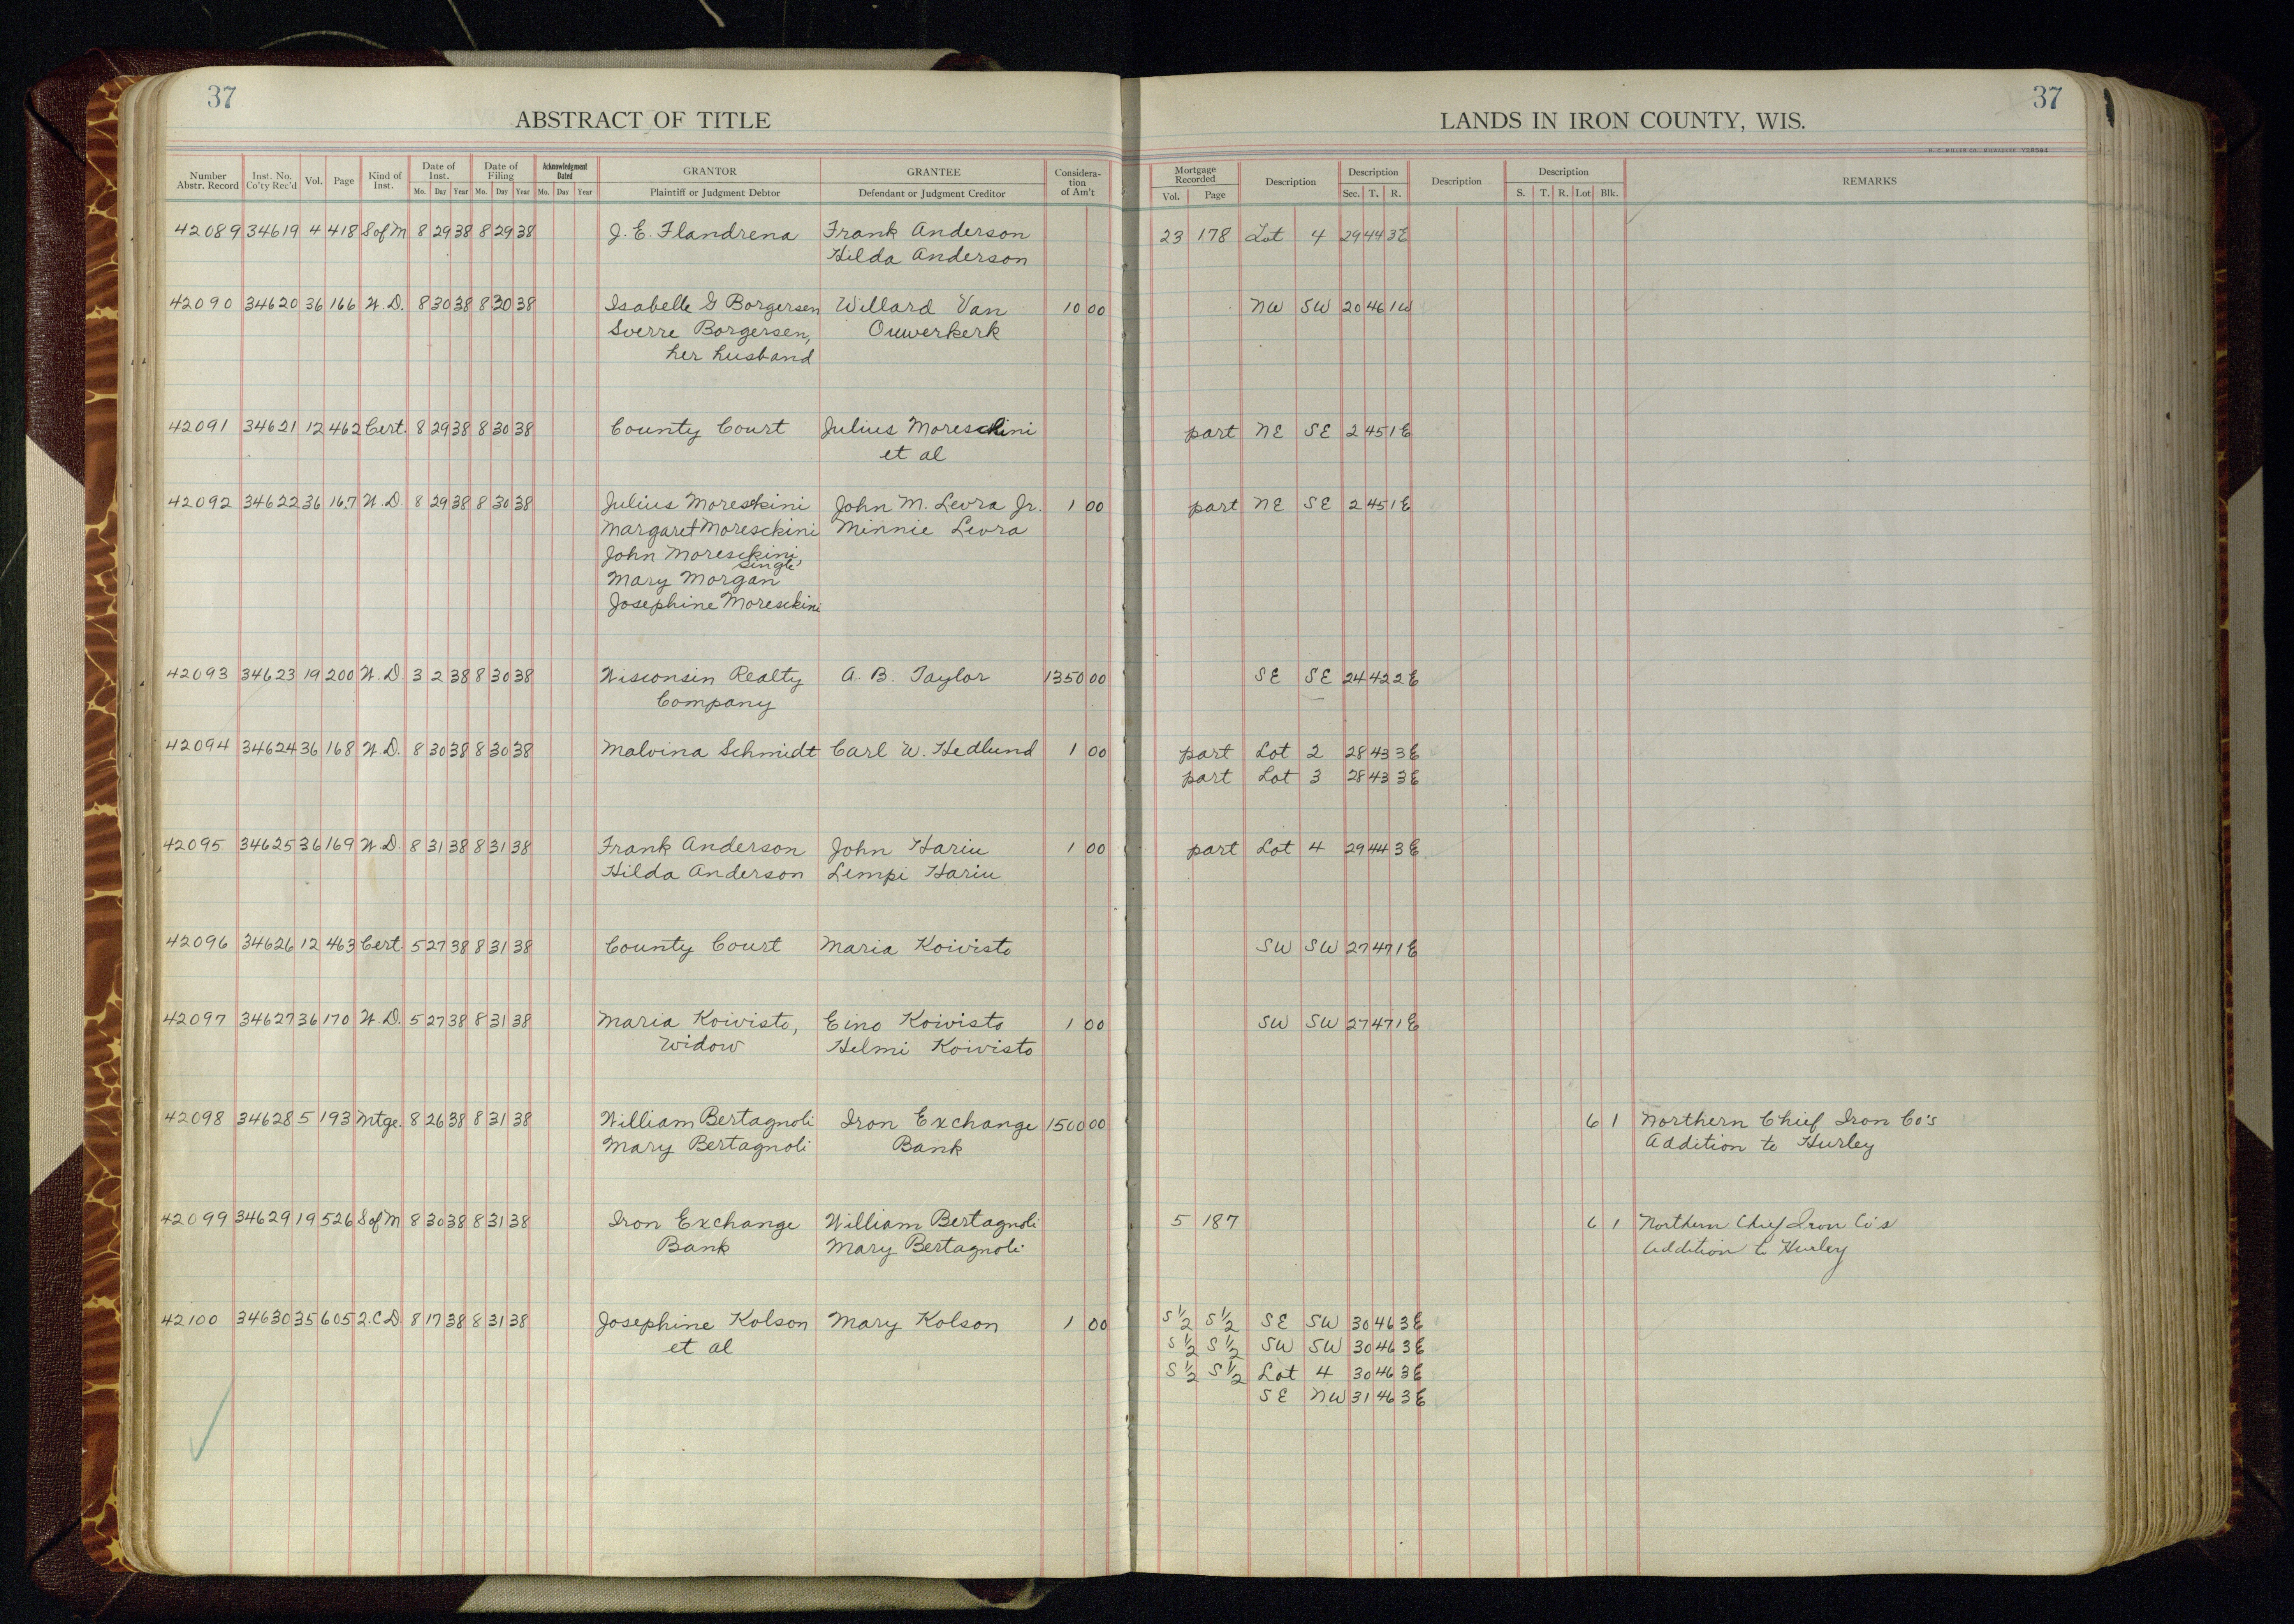 37
37
ABSTRACT OF TITLE
LANDS IN IRON COUNTY, WIS.
Number Abstr. Record Inst. No. Co'ty Rec'd Vol. Page Kind of Inst. Date of Inst. Mo. Day Year Date of Filing Mo. Day Year Acknowledgment Dated Mo. Day Year GRANTOR Plaintiff or Judgment Debtor GRANTEE Defendant or Judgment Creditor Consideration of Am't Mortgage Recorded Vol. Page Description Description Sec. T. R. Description Description S. T. R. Lot Blk. REMARKS
42089 34619 4 418 S of M 8 29 38 8 29 38 J. E. Flandrena Frank Anderson 23 178 Lot 4 29 44 3E
Hilda Anderson
42090 34620 36 166 W.D. 8 30 38 8 30 38 Isabelle G Borgersen Willard Van 10 00 NW SW 20 46 1W
Sverre Borgersen, Ouwerkerk
her husband
42091 34621 12 462 Cert. 8 29 38 8 30 38 County Court Julius Moreschini part NE SE 2 45 1E
et al
42092 34622 36 167 W.D. 8 29 38 8 30 38 Julius Moreskini John M. Levra Jr. 1 00 part NE SE 2 45 1E
Margaret Moresckini Minnie Levra
John Moresckini,
Single
Mary Morgan
Josephine Moresckini
42093 34623 19 200 W.D. 3 2 38 8 30 38 Wisconsin Realty A. B. Taylor 1350 00 SE SE 24 42 2E
Company
42094 34624 36 168 W.D. 8 30 38 8 30 38 Malvina Schmidt Carl W. Hedlund 1 00 part Lot 2 28 43 3E
part Lot 3 28 43 3E
42095 34625 36 169 W.D. 8 31 38 8 31 38 Frank Anderson John Hariu 1 00 part Lot 4 29 44 3E
Hilda Anderson Lempi Hariu
42096 34626 12 463 Cert. 5 27 38 8 31 38 County Court Maria Koivisto SW SW 27 47 1E
42097 34627 36 170 W.D. 5 27 38 8 31 38 Maria Koivisto, Eino Koivisto 1 00 SW SW 27 47 1E
Widow Helmi Koivisto
42098 34628 5 193 Mtge. 8 26 38 8 31 38 William Bertagnoli Iron Exchange 1500 00 6 1 Northern Chief Iron Co's
Mary Bertagnoli Bank Addition to Hurley
42099 34629 19 526 S of M 8 30 38 8 31 38 Iron Exchange William Bertagnoli 5 187 6 1 Northern Chief Iron Co's
Bank Mary Bertagnoli Addition to Hurley
42100 34630 35 605 2.C.D. 8 17 38 8 31 38 Josephine Kolson Mary Kolson 1 00 S½ S½ SE SW 30 46 3E
et al S½ S½ SW SW 30 46 3E
S½ S½ Lot 4 30 46 3E
SE NW 31 46 3E